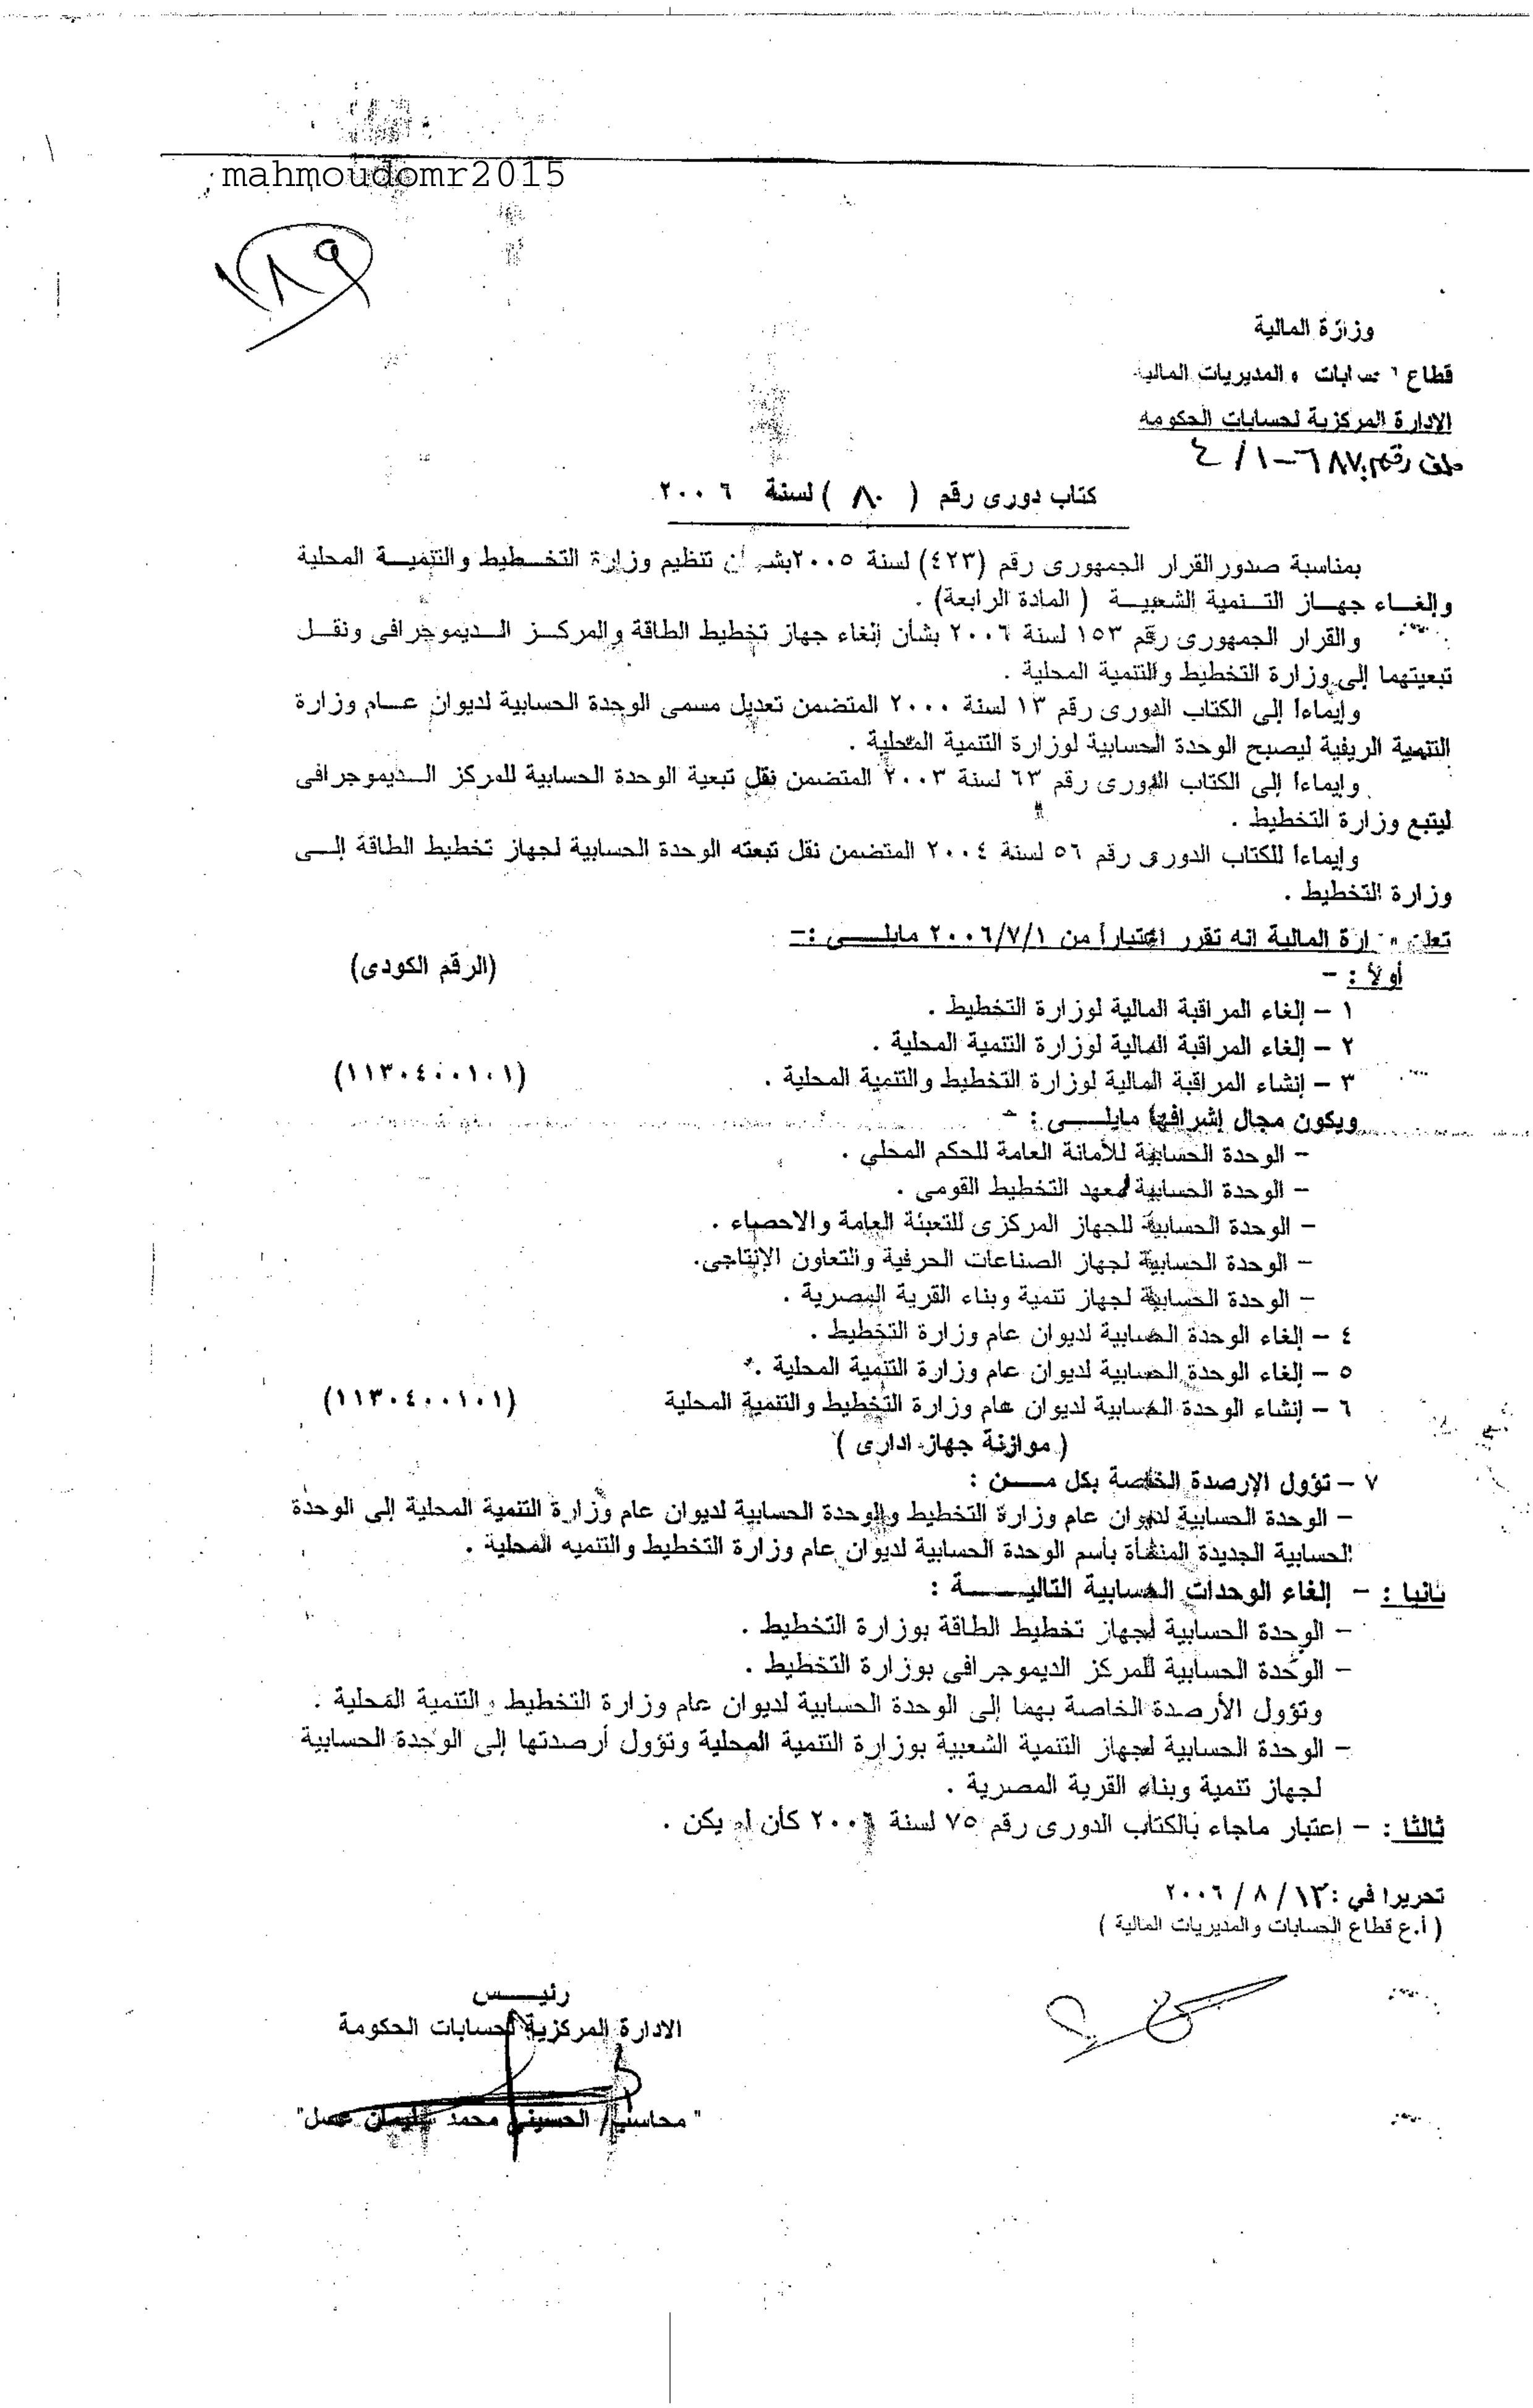 mahmoudomr2015
١٨٩
وزارة المالية
قطاع الحسابات والمديريات المالية
الادارة المركزية لحسابات الحكومه
ملف رقم ٦٨٧-٤/١
كتاب دورى رقم ( ٨٠ ) لسنة ٢٠٠٦
بمناسبة صدور القرار الجمهورى رقم (٤٢٣) لسنة ٢٠٠٥ بشأن تنظيم وزارة التخطيط والتنمية المحلية
وإلغاء جهاز التنمية الشعبية ( المادة الرابعة) .
والقرار الجمهورى رقم ١٥٣ لسنة ٢٠٠٦ بشأن إلغاء جهاز تخطيط الطاقة والمركز الديموجرافى ونقل
تبعيتهما إلى وزارة التخطيط والتنمية المحلية .
وإيماءا إلى الكتاب الدورى رقم ١٣ لسنة ٢٠٠٠ المتضمن تعديل مسمى الوحدة الحسابية لديوان عام وزارة
التنمية الريفية ليصبح الوحدة الحسابية لوزارة التنمية المحلية .
وإيماءا إلى الكتاب الدورى رقم ٦٣ لسنة ٢٠٠٣ المتضمن نقل تبعية الوحدة الحسابية للمركز الديموجرافى
ليتبع وزارة التخطيط .
وإيماءا للكتاب الدورى رقم ٥٦ لسنة ٢٠٠٤ المتضمن نقل تبعته الوحدة الحسابية لجهاز تخطيط الطاقة إلى
وزارة التخطيط .
تعلن وزارة المالية انه تقرر اعتباراً من ٢٠٠٦/٧/١ مايلى :-
(الرقم الكودى)
أولاً : -
١ - إلغاء المراقبة المالية لوزارة التخطيط .
٢ - إلغاء المراقبة المالية لوزارة التنمية المحلية .
٣ - إنشاء المراقبة المالية لوزارة التخطيط والتنمية المحلية . (١١٣٠٤٠٠١٠١)
ويكون مجال إشرافها مايلى : -
- الوحدة الحسابية للأمانة العامة للحكم المحلي .
- الوحدة الحسابية لمعهد التخطيط القومى .
- الوحدة الحسابية للجهاز المركزى للتعبئة العامة والاحصاء .
- الوحدة الحسابية لجهاز الصناعات الحرفية والتعاون الإنتاجى.
- الوحدة الحسابية لجهاز تنمية وبناء القرية المصرية .
٤ - إلغاء الوحدة الحسابية لديوان عام وزارة التخطيط .
٥ - إلغاء الوحدة الحسابية لديوان عام وزارة التنمية المحلية .
٦ - إنشاء الوحدة الحسابية لديوان عام وزارة التخطيط والتنمية المحلية (١١٣٠٤٠٠١٠١)
( موازنة جهاز ادارى )
٧ - تؤول الإرصدة الخاصة بكل من :
- الوحدة الحسابية لديوان عام وزارة التخطيط والوحدة الحسابية لديوان عام وزارة التنمية المحلية إلى الوحدة
الحسابية الجديدة المنشأة بأسم الوحدة الحسابية لديوان عام وزارة التخطيط والتنميه المحلية .
ثانيا : - إلغاء الوحدات الحسابية التالية :
- الوحدة الحسابية لجهاز تخطيط الطاقة بوزارة التخطيط .
- الوحدة الحسابية للمركز الديموجرافى بوزارة التخطيط .
وتؤول الأرصدة الخاصة بهما إلى الوحدة الحسابية لديوان عام وزارة التخطيط والتنمية المحلية .
- الوحدة الحسابية لجهاز التنمية الشعبية بوزارة التنمية المحلية وتؤول أرصدتها إلى الوحدة الحسابية
لجهاز تنمية وبناء القرية المصرية .
ثالثا : - إعتبار ماجاء بالكتاب الدورى رقم ٧٥ لسنة ٢٠٠٦ كأن لم يكن .
تحريرا في : ١٣ / ٨ / ٢٠٠٦
( أ.ع قطاع الحسابات والمديريات المالية )
رئيس
الادارة المركزية لحسابات الحكومة
" محاسب/ الحسينى محمد سليمان عسل"